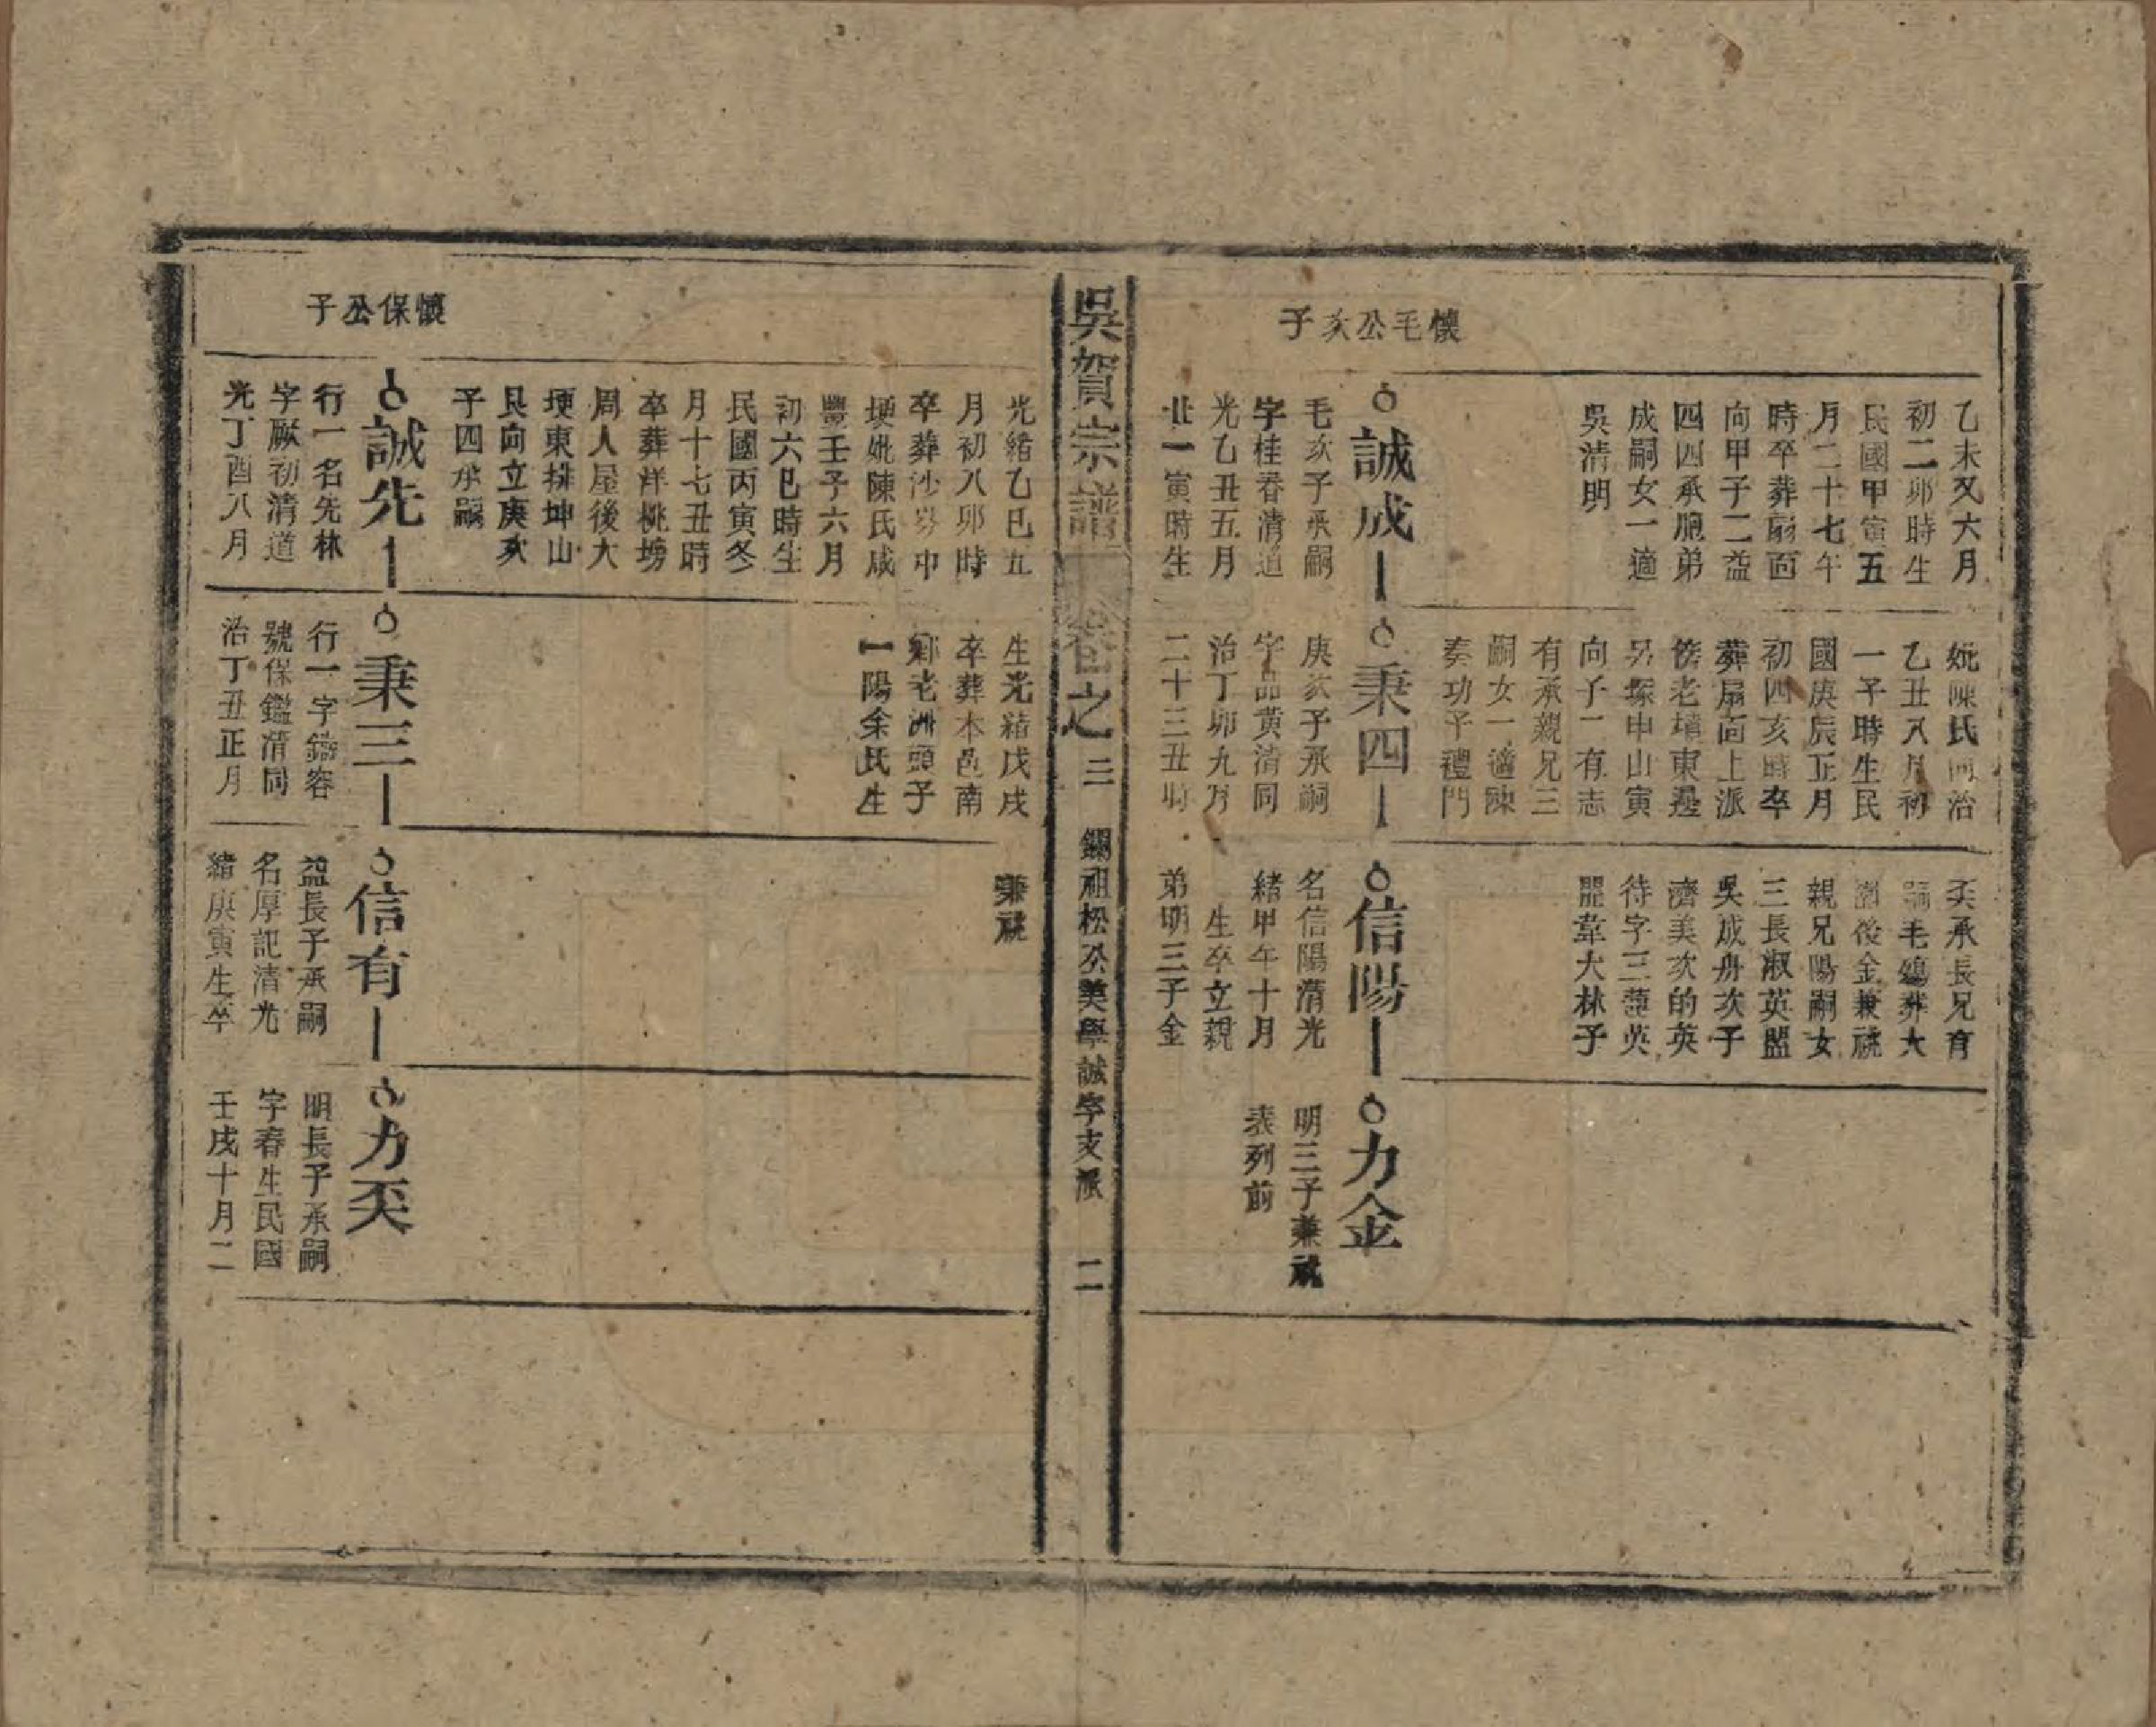 懷毛公亥子
乙未又六月
初二卯時生
民國甲寅五
月二十七午
時卒葬扇面
向甲子二益
四四承胞弟
成嗣女一適
吳清明
誠成
毛亥子承嗣
字桂春清道
光乙丑五月
廿一寅時生
妣陳氏同治
乙丑八月初
一子時生民
國庚辰正月
初四亥時卒
葬扇面上派
傍老墳東邊
另塚申山寅
向子二有志
有承親兄三
嗣女一適陳
奏功子禮門
秉四
庚亥子承嗣
字品黃清同
治丁卯九月
二十三丑時
奀承長兄有
嗣毛鴻葬大
圍後金兼祧
親兄陽嗣女
三長淑英盟
吳成舟次子
濟美次的英
待字三蓮英
盟韋大林子
信陽
名信陽清光
緒甲午十月
生卒立親
弟明三子金
力金
明三子兼祧
表列前
吳賀宗譜
卷之三
鐗祖松公美學誠字支派
二
懷保公子
光緒乙巳五
月初八卯時
卒葬沙易中
埂妣陳氏咸
豐壬子六月
初六巳時生
民國丙寅冬
月十七丑時
卒葬洋桃塝
周人屋後大
埂東排坤山
艮向立庚亥
子四承嗣
誠先
行一名先林
字厥初清道
光丁酉八月
生光緒戊戌
卒葬本邑南
鄉老洲頭子
一陽余氏生
秉三
行一字鑄容
號保鑑清同
治丁丑正月
兼祧
信有
益長子承嗣
名厚記清光
緒庚寅生卒
力奀
明長子承嗣
字春生民國
壬戌十月二